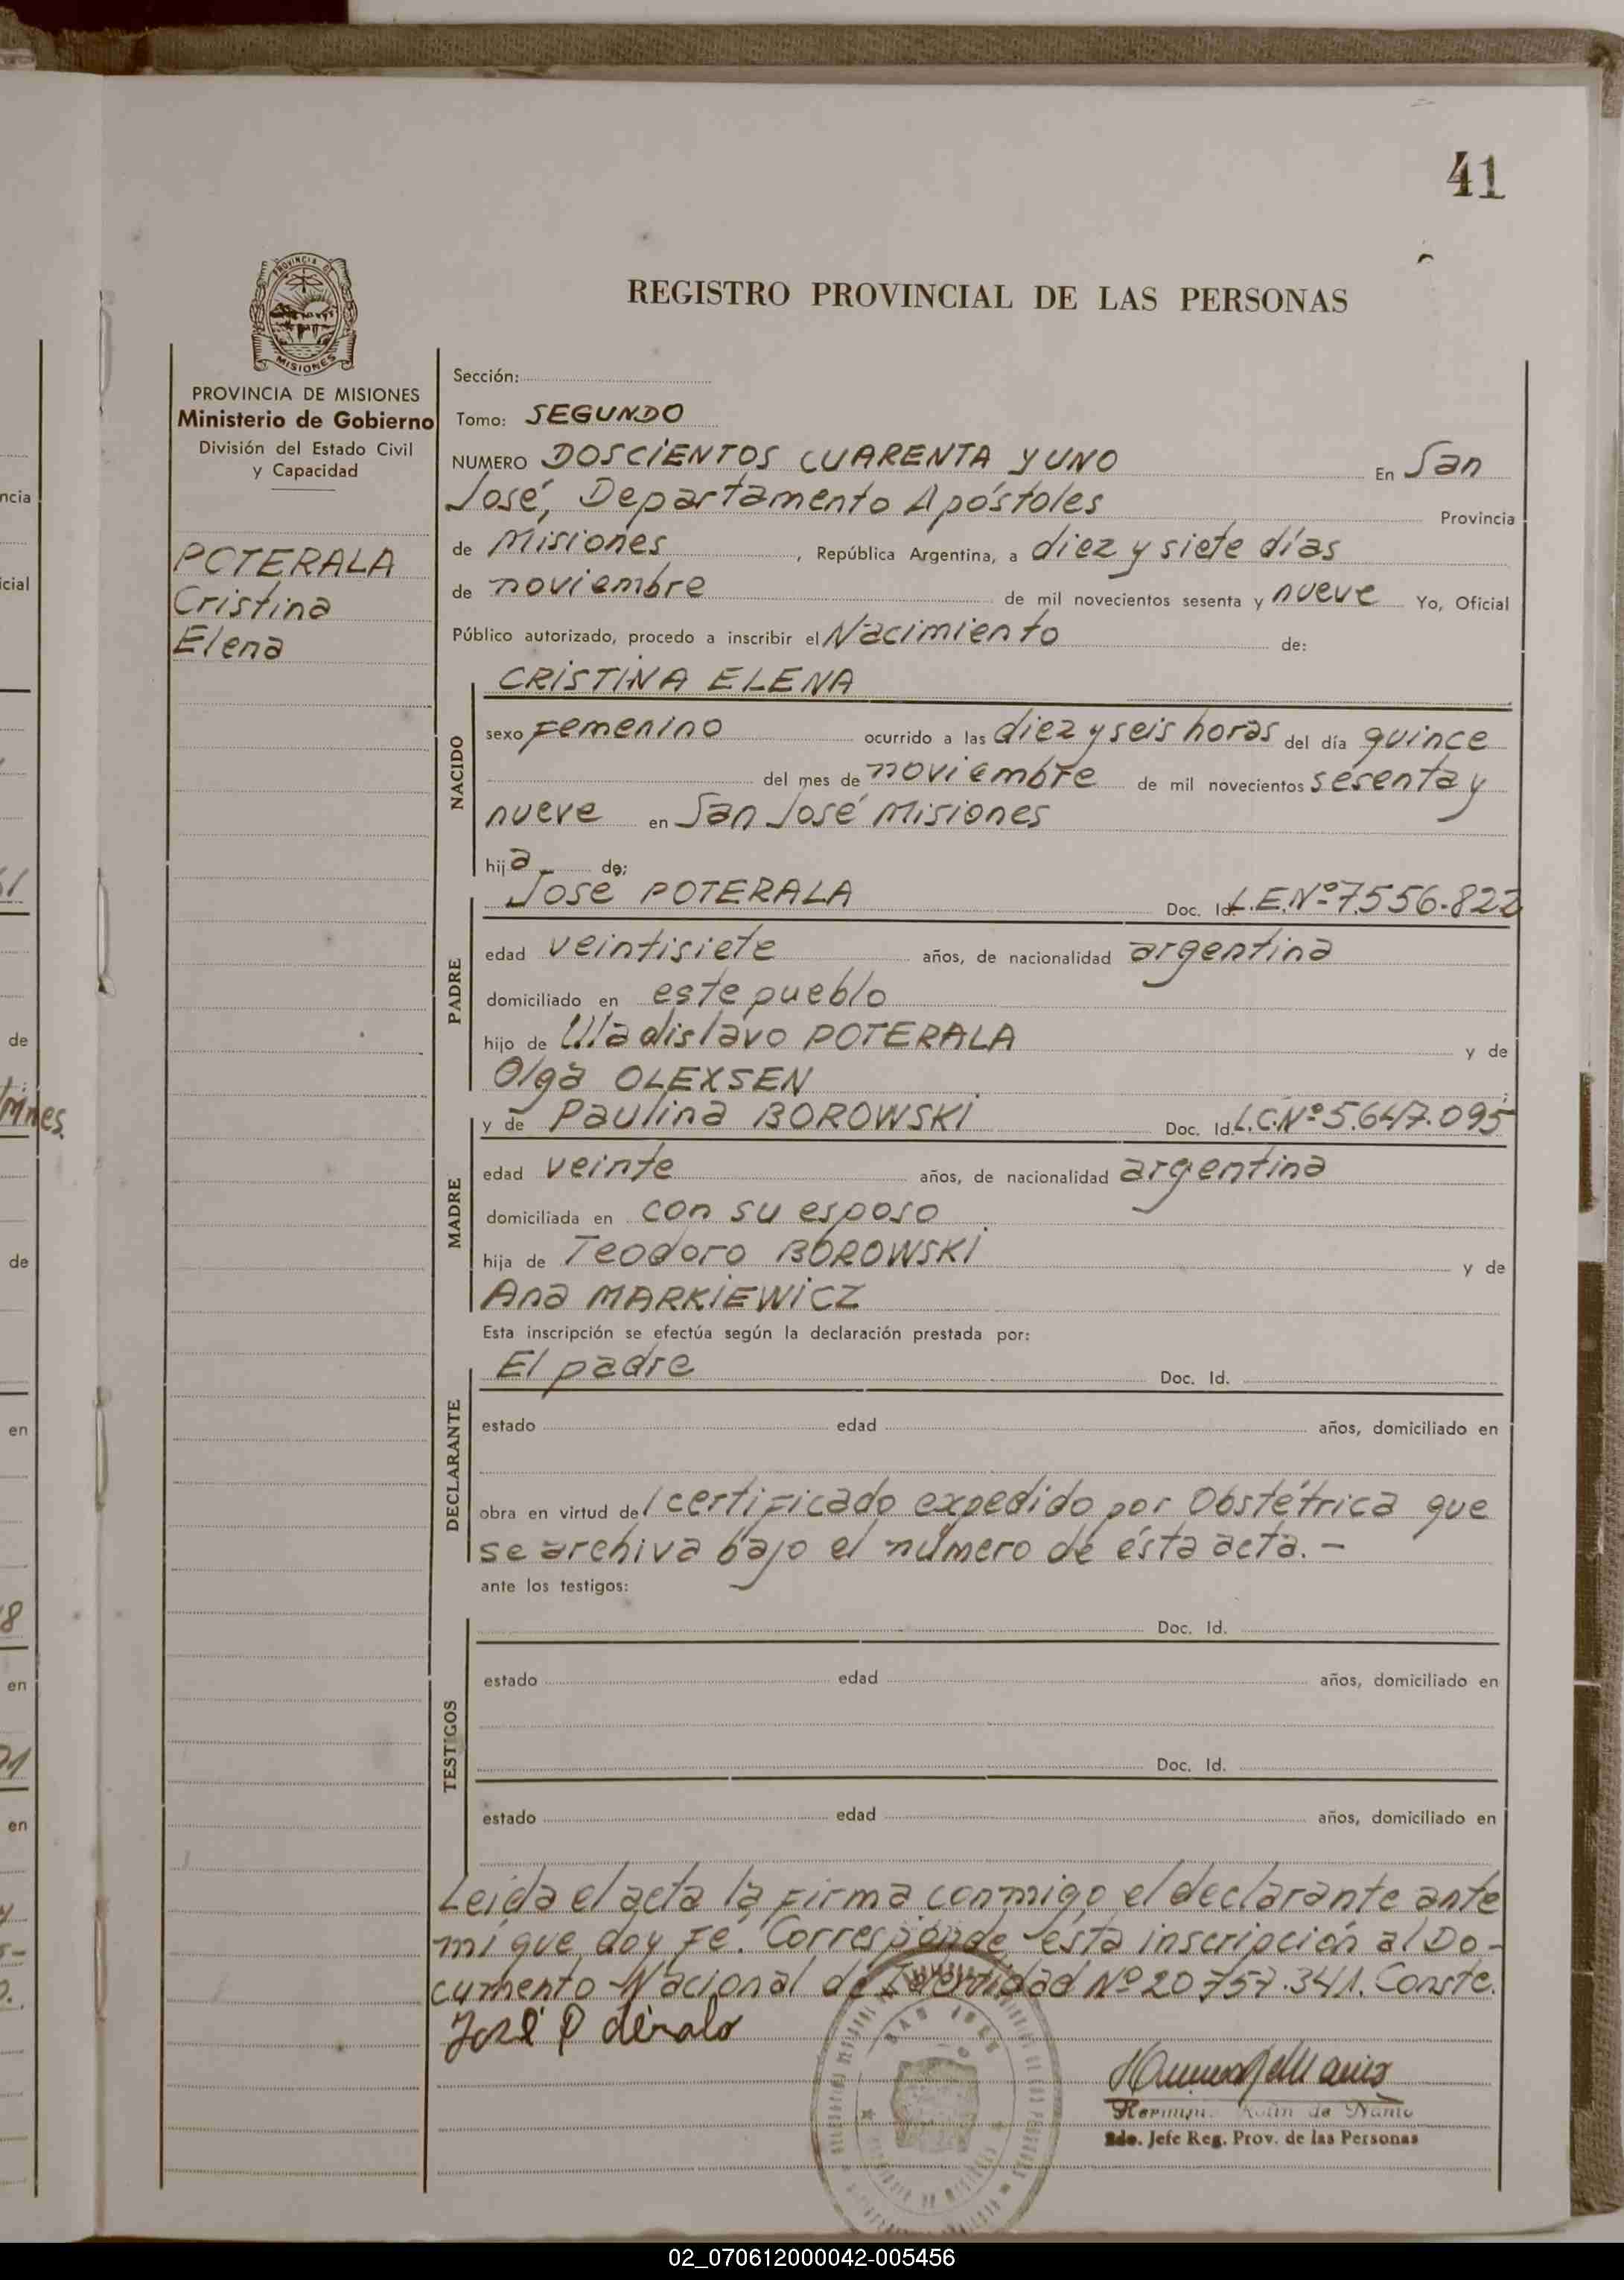 41
PROVINCIA DE
MISIONES
REGISTRO PROVINCIAL DE LAS PERSONAS
PROVINCIA DE MISIONES
Ministerio de Gobierno
División del Estado Civil
y Capacidad
POTERALA
Cristina
Elena
Sección:
Tomo: SEGUNDO
NUMERO DOSCIENTOS CUARENTA Y UNO En San
José, Departamento Apóstoles Provincia
de Misiones, República Argentina, a diez y siete días
de noviembre de mil novecientos sesenta y nueve Yo, Oficial
Público autorizado, procedo a inscribir el Nacimiento de:
CRISTINA ELENA
NACIDO
sexo Femenino ocurrido a las diez y seis horas del día quince
del mes de noviembre de mil novecientos sesenta y
nueve en San José Misiones
hija de:
PADRE
José POTERALA Doc. Id. L.E.Nº 7.556.822
edad veintisiete años, de nacionalidad argentina
domiciliado en este pueblo
hijo de Uladislavo POTERALA y de
Olga OLEXSEN
MADRE
y de Paulina BOROWSKI Doc. Id. L.C.Nº 5.647.095
edad veinte años, de nacionalidad argentina
domiciliada en con su esposo
hija de Teodoro BOROWSKI y de
Ana MARKIEWICZ
Esta inscripción se efectúa según la declaración prestada por:
DECLARANTE
El padre Doc. Id.
estado edad años, domiciliado en
obra en virtud del certificado expedido por Obstétrica que
se archiva bajo el número de ésta acta. -
ante los testigos:
TESTIGOS
Doc. Id.
estado edad años, domiciliado en
Doc. Id.
estado edad años, domiciliado en
Leída el acta la firma conmigo el declarante ante
mí que doy Fé. Corresponde ésta inscripción al Do-
cumento Nacional de Identidad Nº 20.757.341. Conste.
José
Jefe Reg. Prov. de las Personas
ncia
icial
de
Mnes.
de
en
en
en
02_070612000042-005456